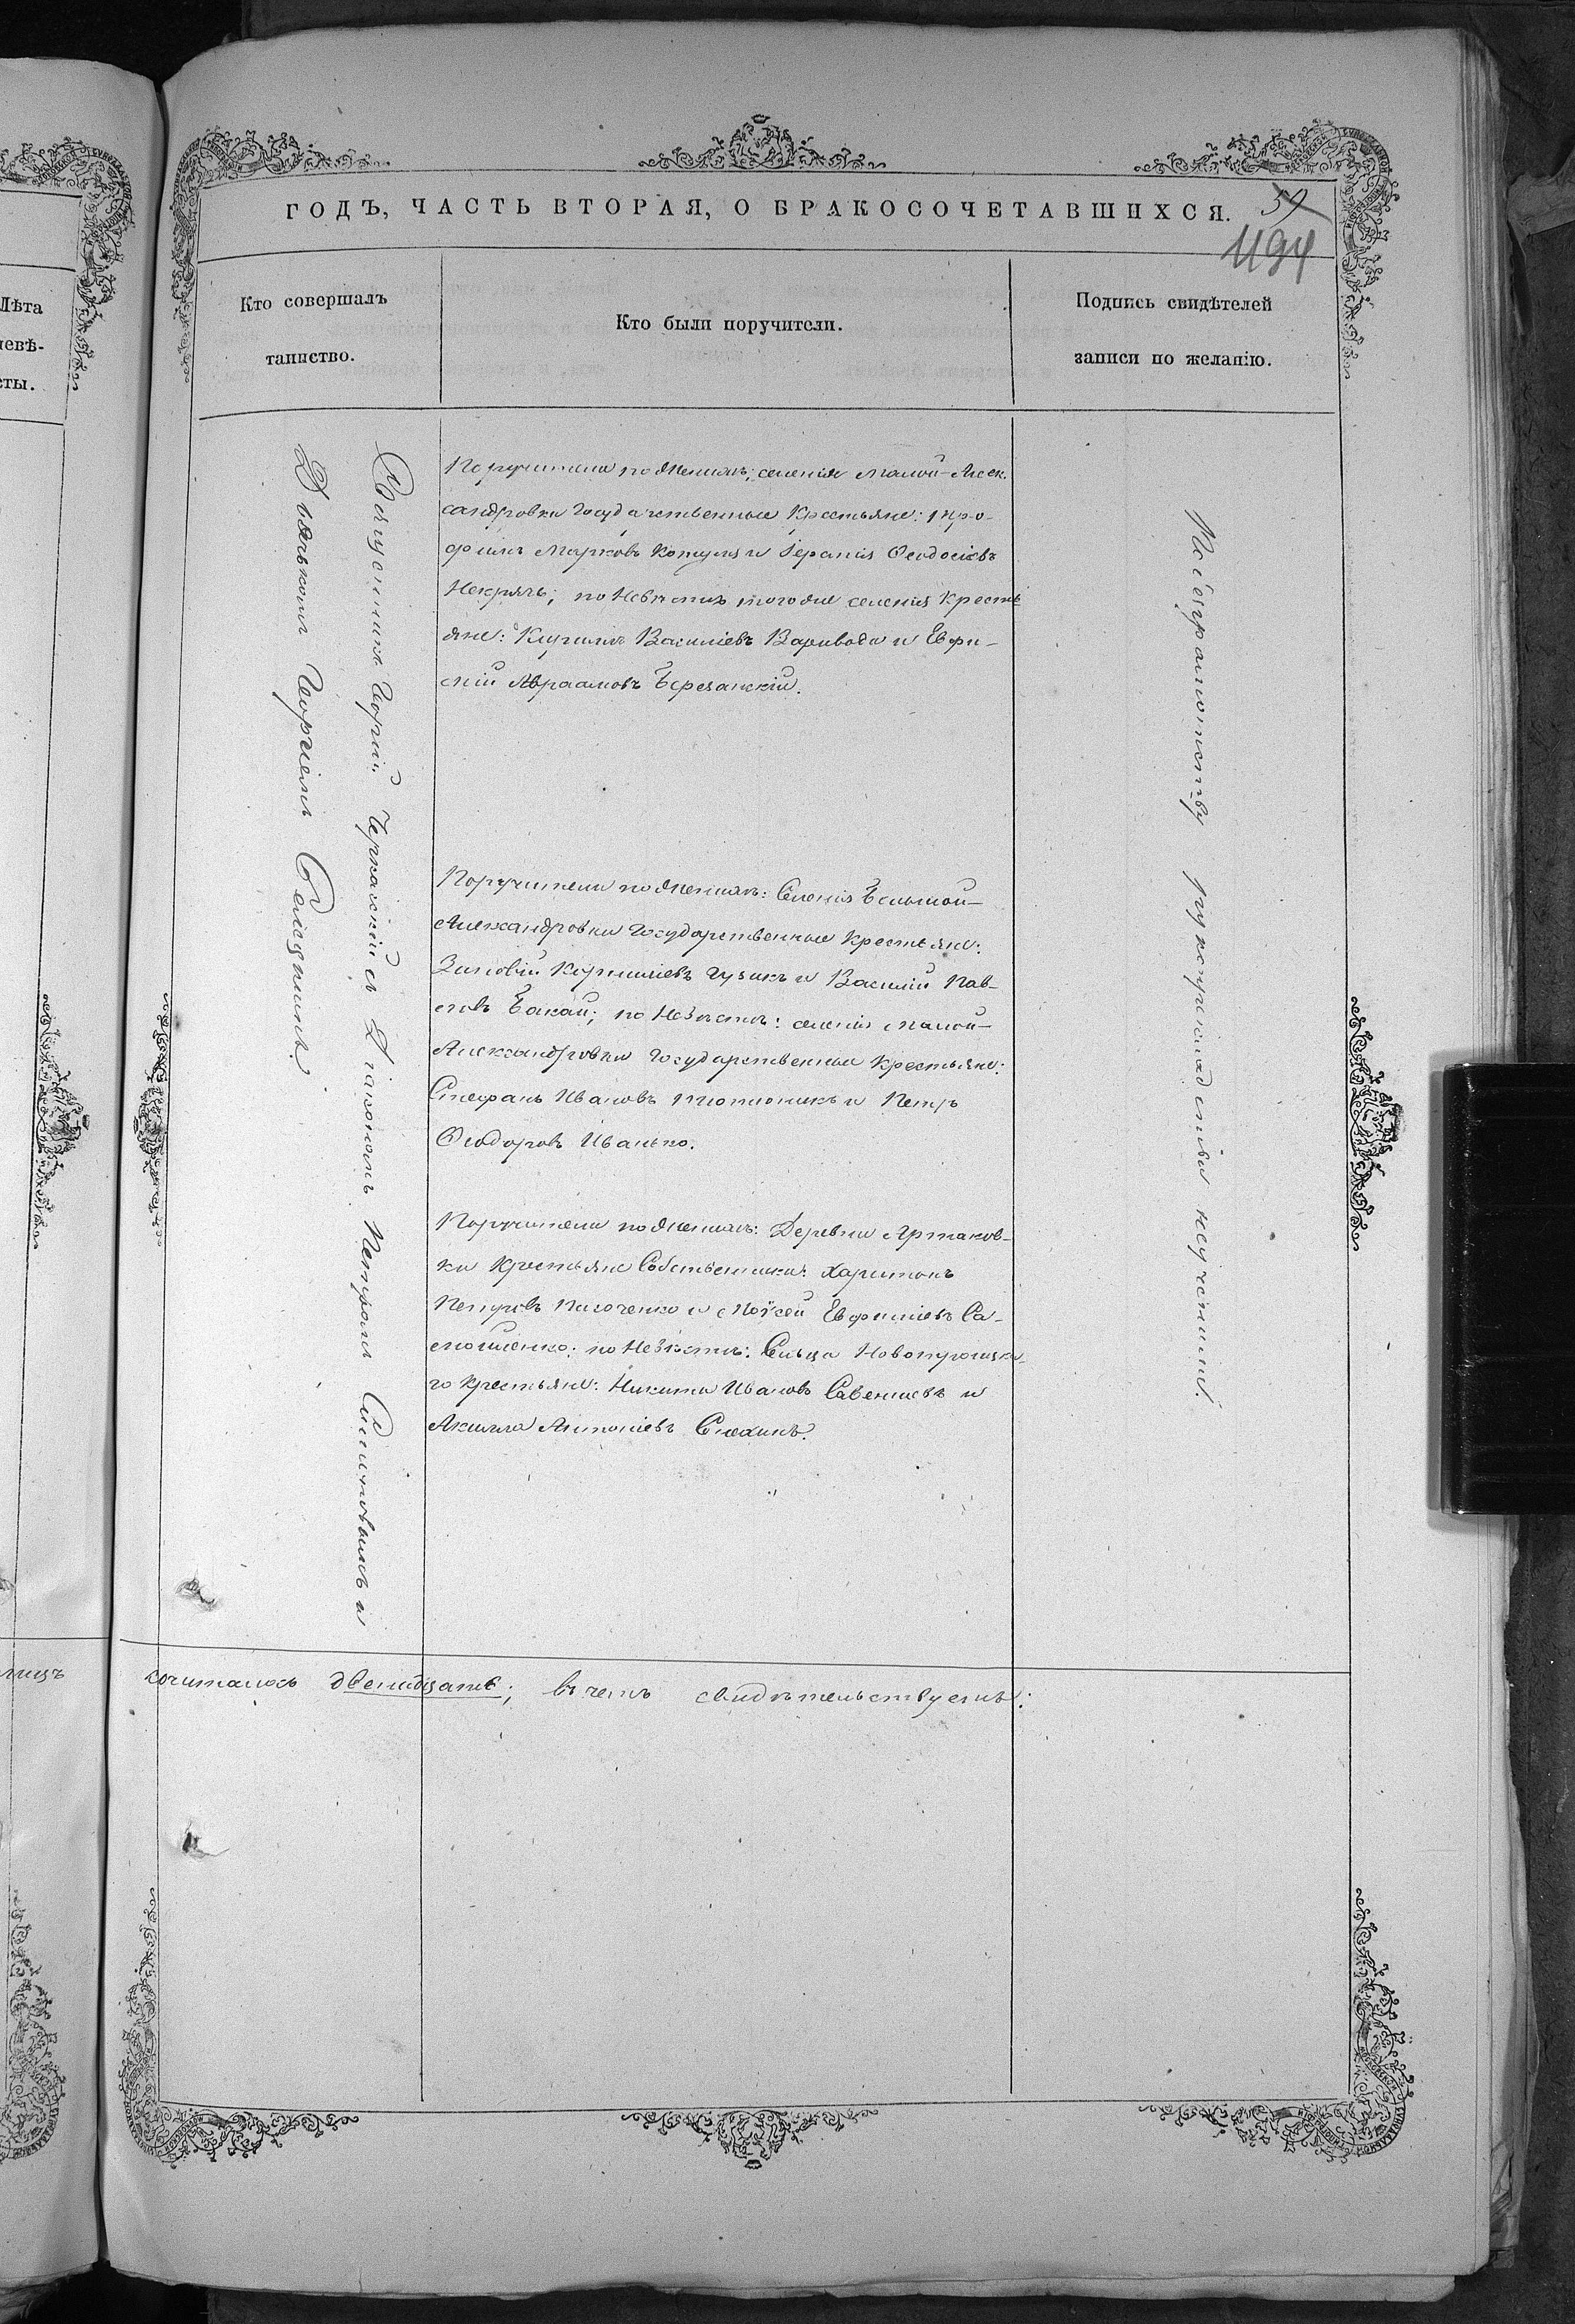 Лѣта
невѣ-
сты.
лицъ
ГОДЪ, ЧАСТЬ ВТОРАЯ, О БРАКОСОЧЕТАВШИХСЯ.
39
1194
Кто совершалъ
таинство.
Кто были поручители.
Подпись свидѣтелей
записи по желанію.
Священникъ Георгій Черкавскій съ Діакономъ Петромъ и
Дьячкомъ Георгіемъ
Поручители по Женихѣ: селенія Малой-Алек-
сандровки Государственные крестьяне: Тро-
фимъ Марковъ Коцуля и Герасим Ѳеодосіевъ
по Невѣстѣ того же селенія крестья
яне: Кириллъ Василіевъ Варивода и Евфи-
мій Авраамовъ Березанскій.
Поручители по Женихѣ: Селенія Большой-
Александровки Государственные крестьяне:
Зиновій Корниліевъ Гузикъ и Василій Пав-
ловъ Бакай; по Невѣстѣ: селенія Малой-
Александровки Государственные крестьяне:
Стефанъ Ивановъ Тютюникъ и Петръ
Ѳеодоровъ Иванько.
Поручители по Женихѣ: Деревни Армаков-
ки Крестьяне Собственники: Харитонъ
Петровъ и Моѵсей Евфиміевъ Са-
мойленко; по Невѣстѣ: Сельца Новотроицка-
го крестьяне: Никита Ивановъ Савеліевъ и
Акилла Антоніевъ
Неграмотству рукоприкладствы неучинили.
сочиталось двенадцать; въ чемъ свидѣтельствуемъ: